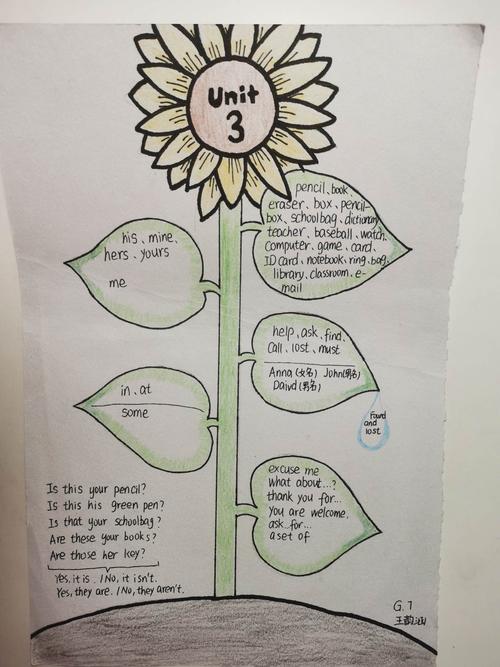 Unit
3
pencil、book、
eraser、box、pencil-
box、schoolbag、dictionary
teacher、baseball、watch、
computer、game、card、
ID card、notebook、ring、bag、
library、classroom、e-
mail
his、mine、
hers、yours
me
help、ask、find、
call、lost、must
Anna(女名) John(男名)
Daivd(男名)
Found
and
lost
in、at
some
excuse me
what about...?
thank you for...
you are welcome.
ask...for...
a set of
Is this your pencil?
Is this his green pen?
Is that your schoolbag?
Are these your books?
Are those her key?
Yes, it is. / No, it isn't.
Yes, they are. / No, they aren't.
G. 7
王韵涵